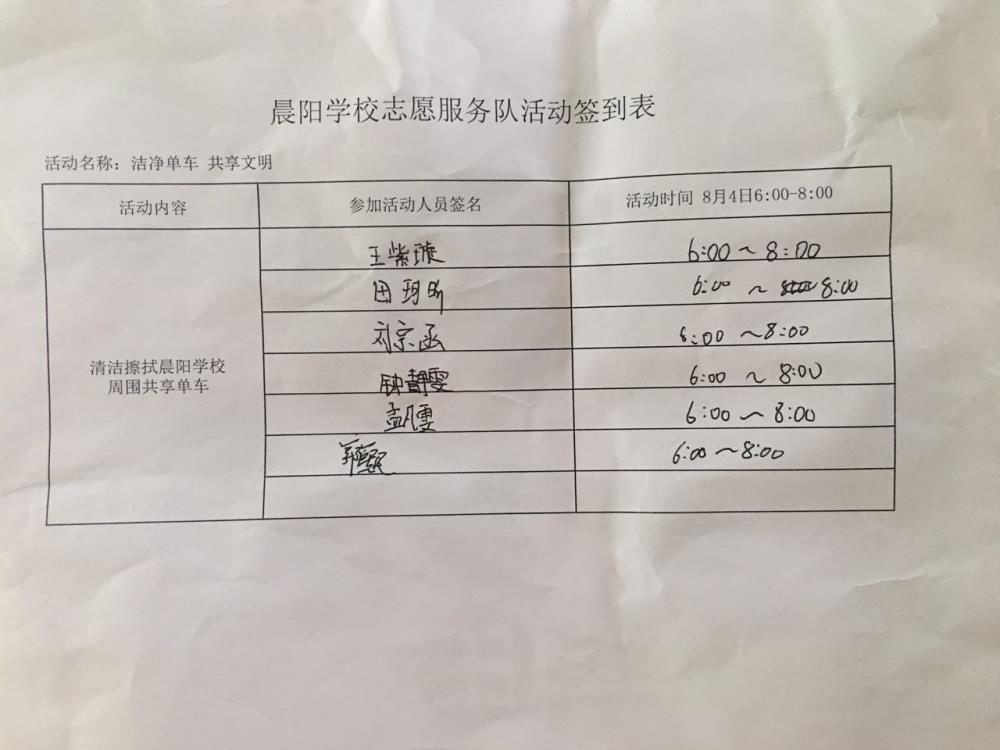 晨阳学校志愿服务队活动签到表
活动名称：洁净单车 共享文明
活动内容 参加活动人员签名 活动时间 8月4日6:00-8:00
清洁擦拭晨阳学校
周围共享单车
王紫璇 6:00～8:00
田玥昕 6:00 ～ 8:00
刘宗函 6:00～8:00
钟静雯 6:00 ～ 8:00
孟凡雯 6:00～8:00
6:00～8:00